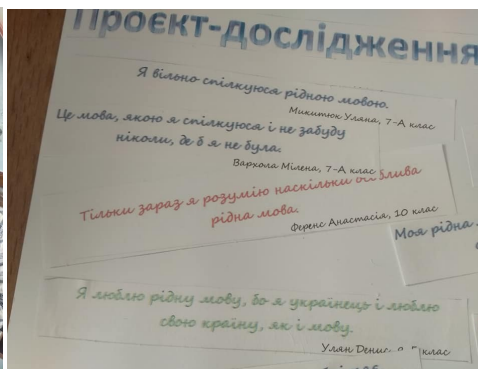 Проєкт-дослідження
Я вільно спілкуюся рідною мовою.
Микитюк Уляна, 7-А клас
Це мова, якою я спілкуюся і не забуду
ніколи, де б я не була.
Вархола Мілена, 7-А клас
Тільки зараз я розумію наскільки
рідна мова.
Ференс Анастасія, 10 клас
Моя рідна
Я люблю рідну мову, бо я українець і люблю
свою країну, як і мову.
Улян клас